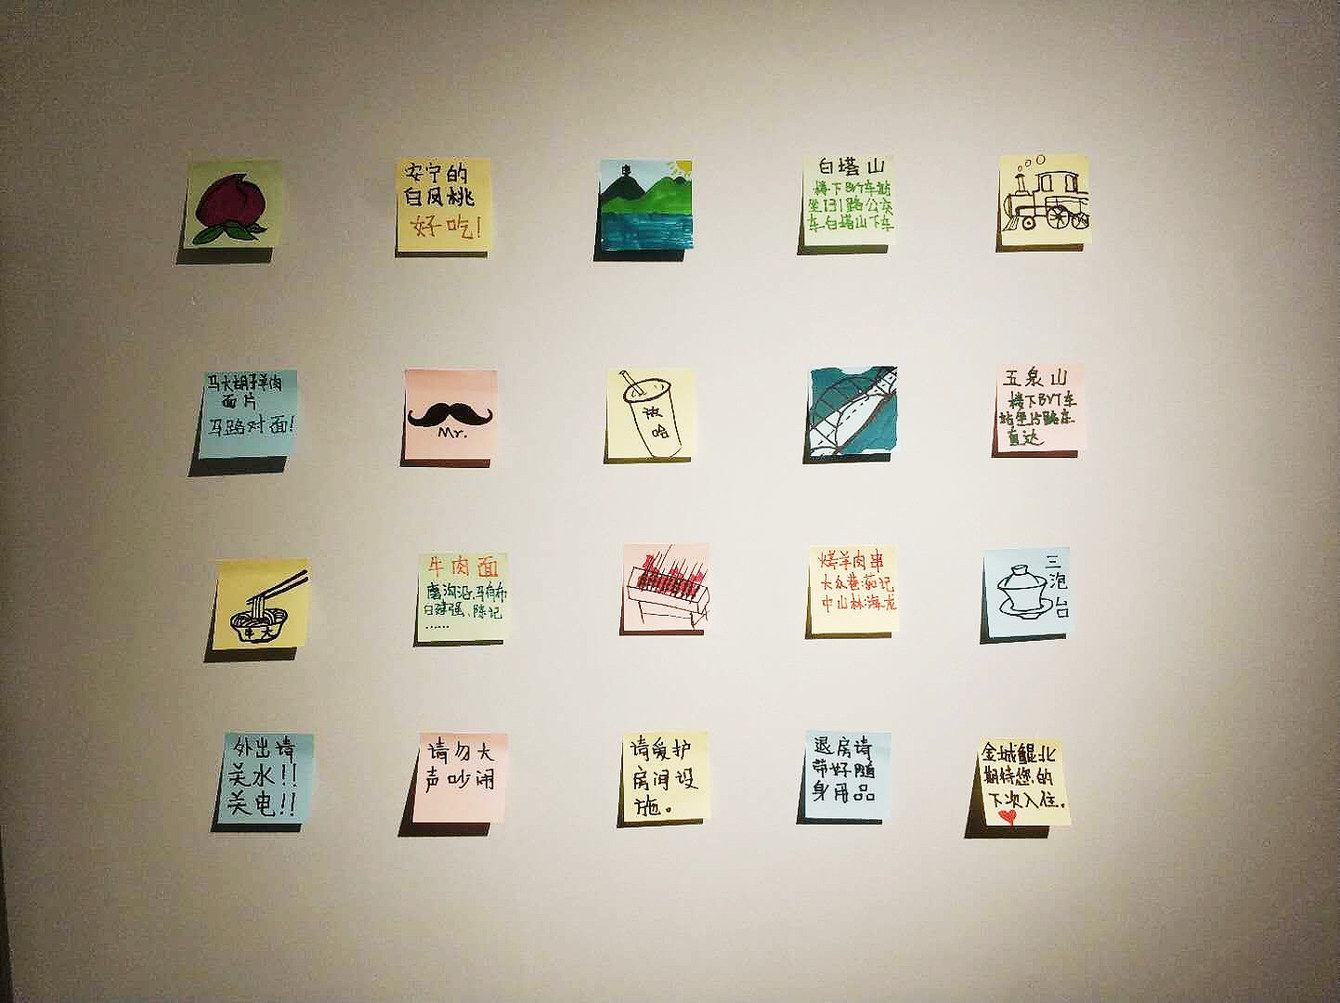 安宁的
白凤桃
好吃!
白塔山
楼下BRT车站
坐131路公交
车白塔山下车
马大胡子羊肉
面片
马路对面!
Mr.
放
哈
五泉山
楼下BRT车
直达
牛大
牛肉面
磨沟沿、马有布
白建强、陈记
......
烤羊肉串
大众巷茹记
中山林海龙
三泡台
外出请
关水!!
关电!!
请勿大
声吵闹
请爱护
房间设
施。
退房请
带好随
身用品
金城鲲北
期待您的
下次入住.